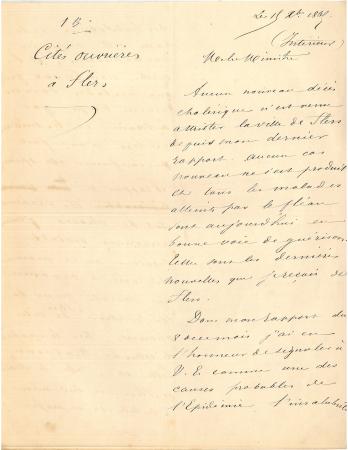 1 B
Cités ouvrières
à Flers
Le 15 Xbre
(Intérieur)
M. le Ministre
Aucun nouveau décès
cholérique n'est venu
attrister la ville de Flers
depuis mon dernier
rapport. aucun cas
nouveau ne s'est produit
et tous les malades
atteints par le fléau
sont aujourd'hui en
bonne voie de guérison.
telles sont les dernières
nouvelles que je reçois de
Flers.
Dans mon rapport du
8 de ce mois j'ai eu
l'honneur de signaler à
V. E. comme une des
causes probables de
l'Epidémie l'insalubrité